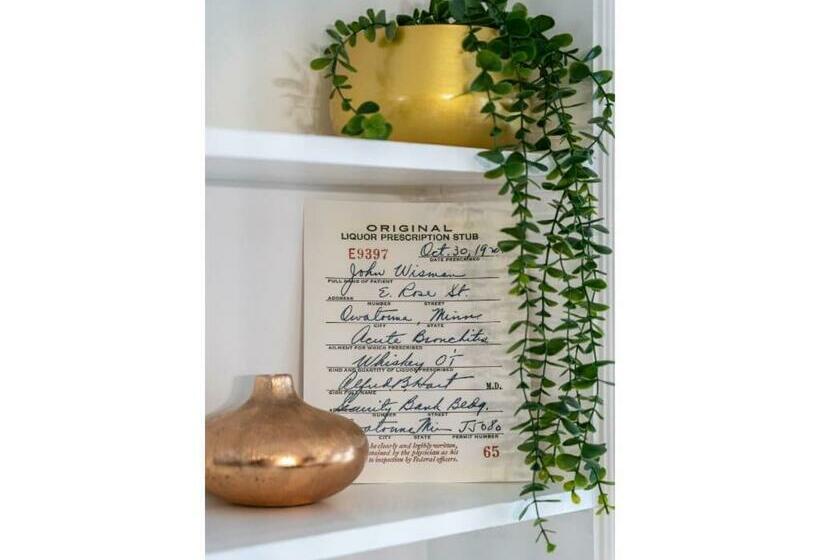 ORIGINAL
LIQUOR PRESCRIPTION STUB
E9397 Oct. 30, 19
DATE PRESCRIBED
John Wisman
FULL NAME OF PATIENT
E. Rose St.
ADDRESS NUMBER STREET
Owatonna, Minn
CITY STATE
Acute Bronchitis
AILMENT FOR WHICH PRESCRIBED
Whiskey
KIND AND QUANTITY OF LIQUOR PRESCRIBED
Alfred B. Hart M.D.
SIGN FULL NAME
Security Bank Bldg.
NUMBER STREET
Minn
CITY STATE PERMIT NUMBER
be clearly and legibly written,
retained by the physician as his
to inspection by Federal officers.
65